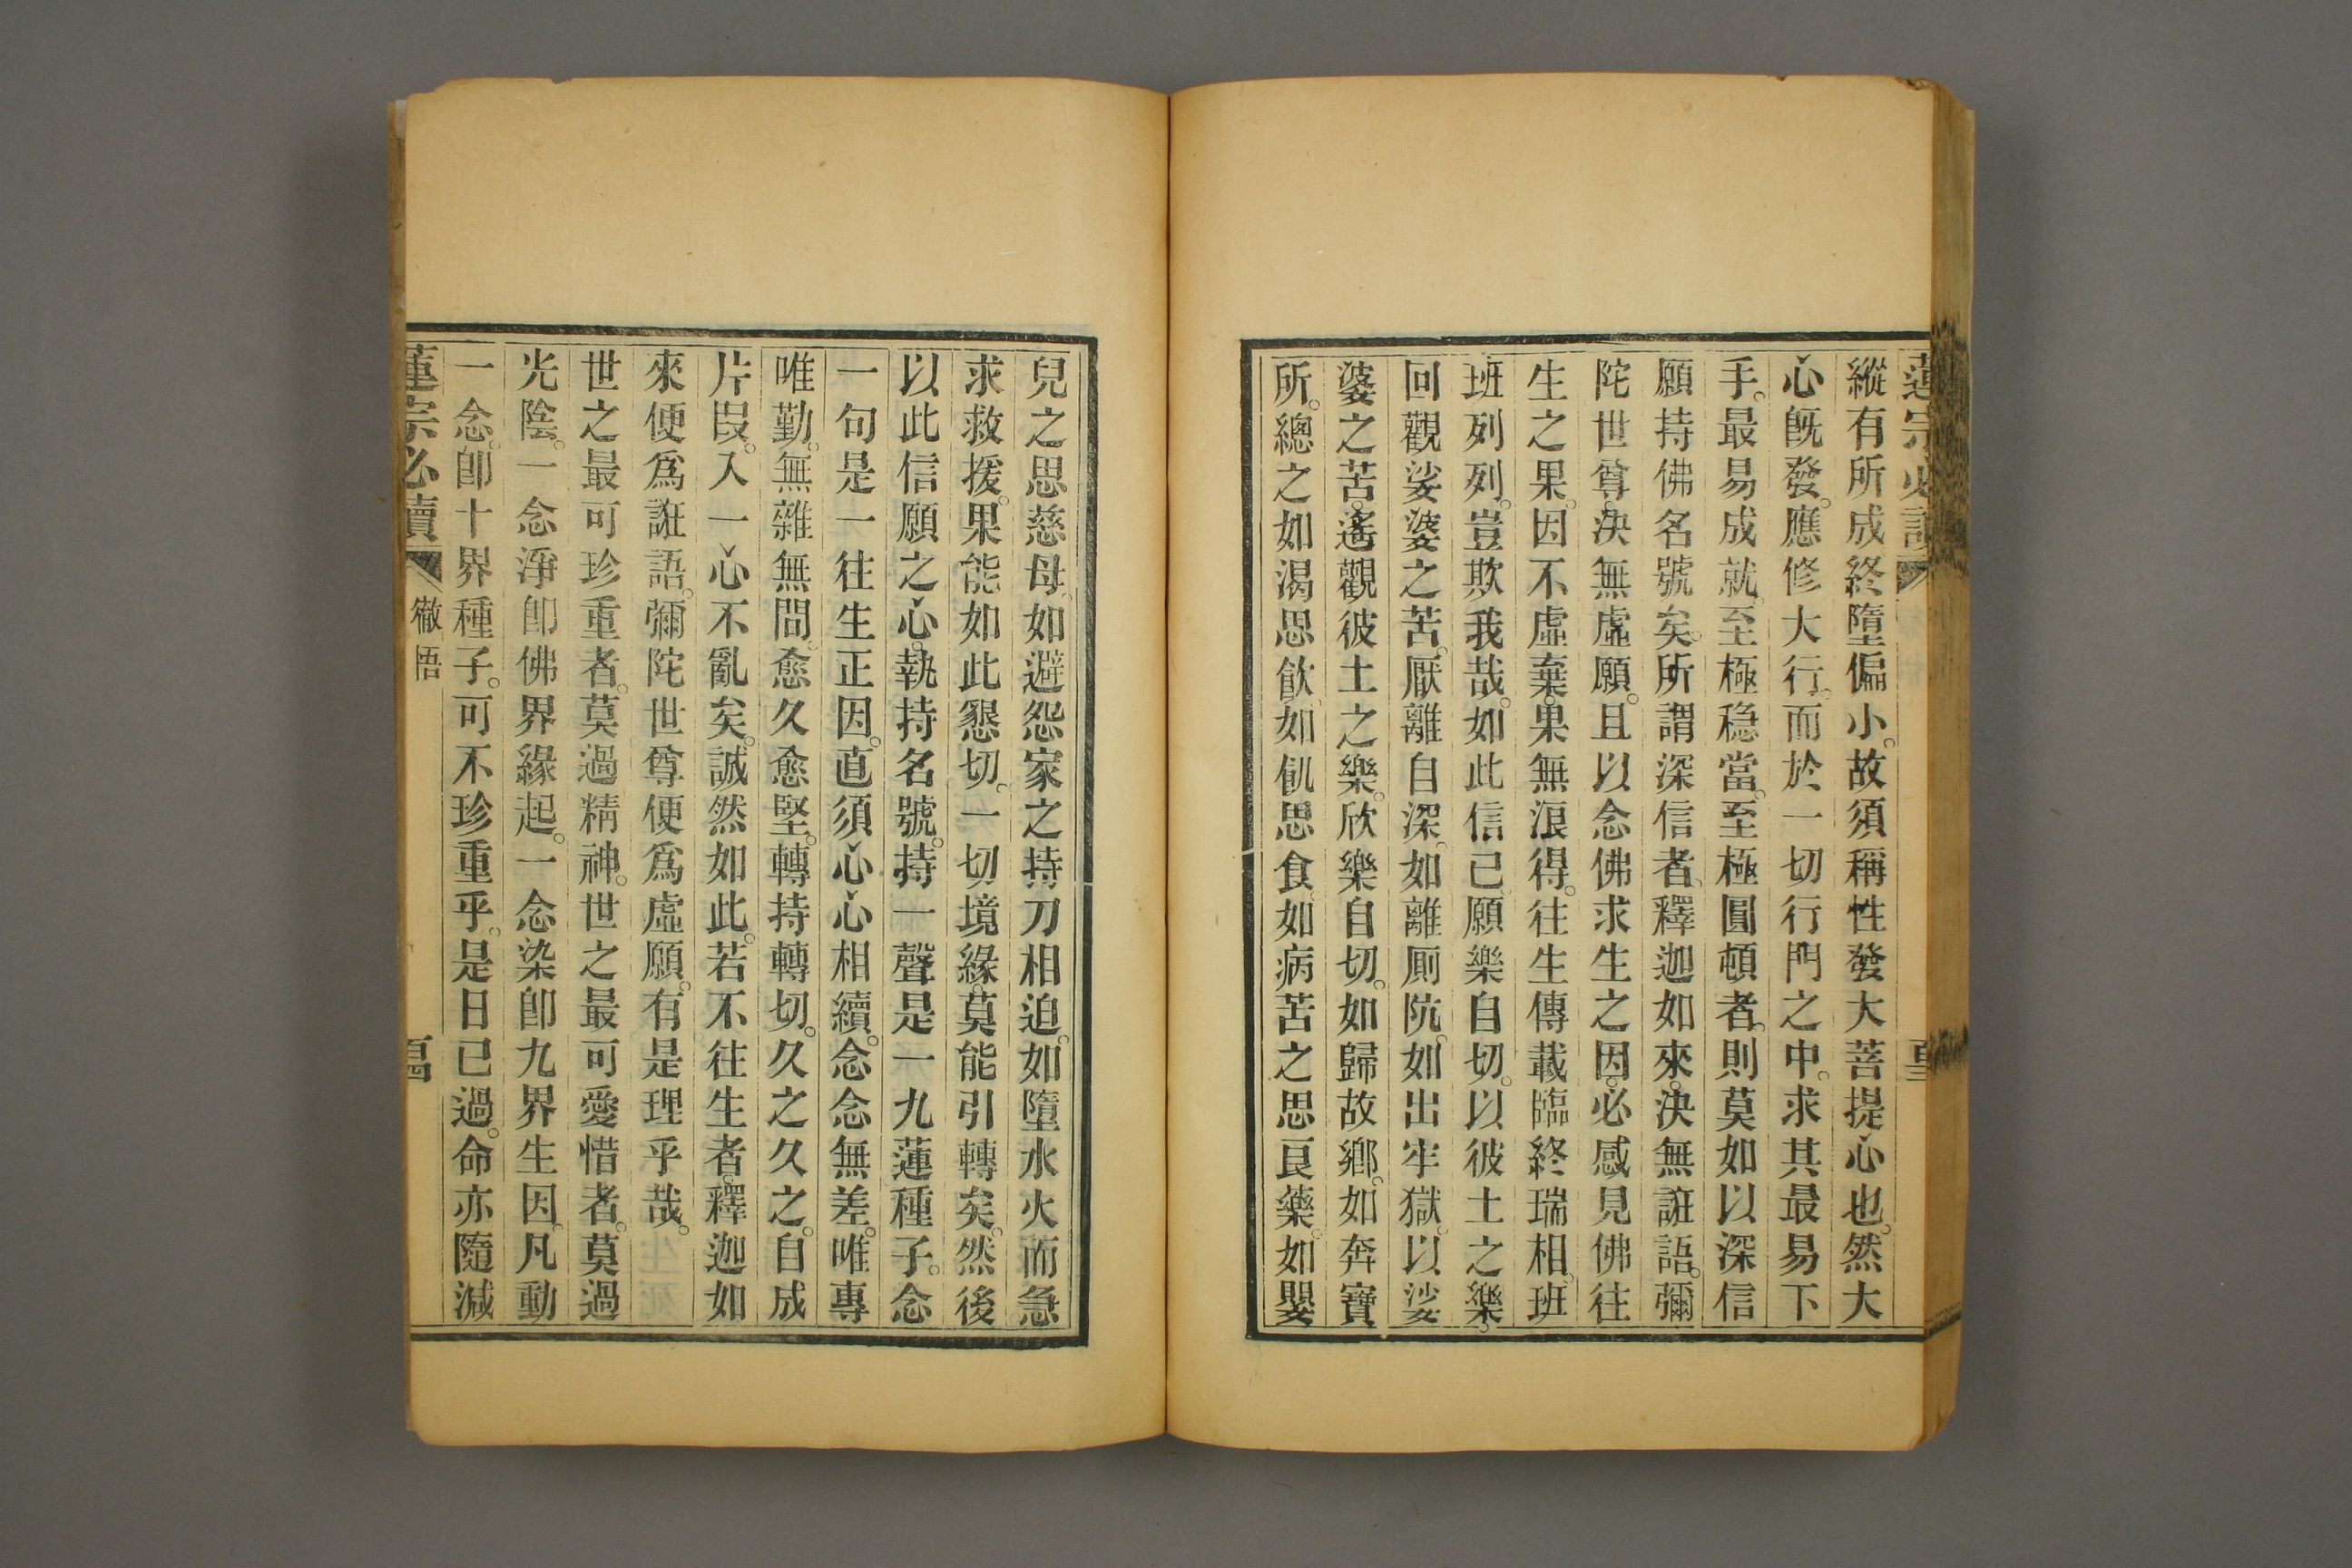 縱有所成終墮偏小。故須稱性發大菩提心也。然大
心旣發。應修大行。而於一切行門之中。求其最易下
手。最易成就。至極穩當。至極圓頓者。則莫如以深信
願持佛名號矣。所謂深信者。釋迦如來。決無誑語。彌
陀世尊。決無虛願。且以念佛求生之因。必感見佛往
生之果。因不虛棄。果無浪得。往生傳載臨終瑞相。班
班列列。豈欺我哉。如此信已。願樂自切。以彼土之樂。
回觀娑婆之苦。厭離自深。如離厠阬。如出牢獄。以娑
婆之苦。遙觀彼土之樂。欣樂自切。如歸故鄉。如奔寶
所。總之如渴思飮。如飢思食。如病苦之思良藥。如嬰
兒之思慈母。如避怨家之持刀相迫。如墮水火而急
求救援。果能如此懇切。一切境緣。莫能引轉矣。然後
以此信願之心。執持名號。持一聲是一九蓮種子。念
一句是一往生正因。直須心心相續。念念無差。唯專
唯勤。無雜無間。愈久愈堅。轉持轉切。久之久之。自成
片段。入一心不亂矣。誠然如此。若不往生者。釋迦如
來便爲誑語。彌陀世尊便爲虛願。有是理乎哉。
世之最可珍重者。莫過精神。世之最可愛惜者。莫過
光陰。一念淨卽佛界緣起。一念染卽九界生因。凡動
一念。卽十界種子。可不珍重乎。是日已過。命亦隨減
蓮宗必讀 徹悟